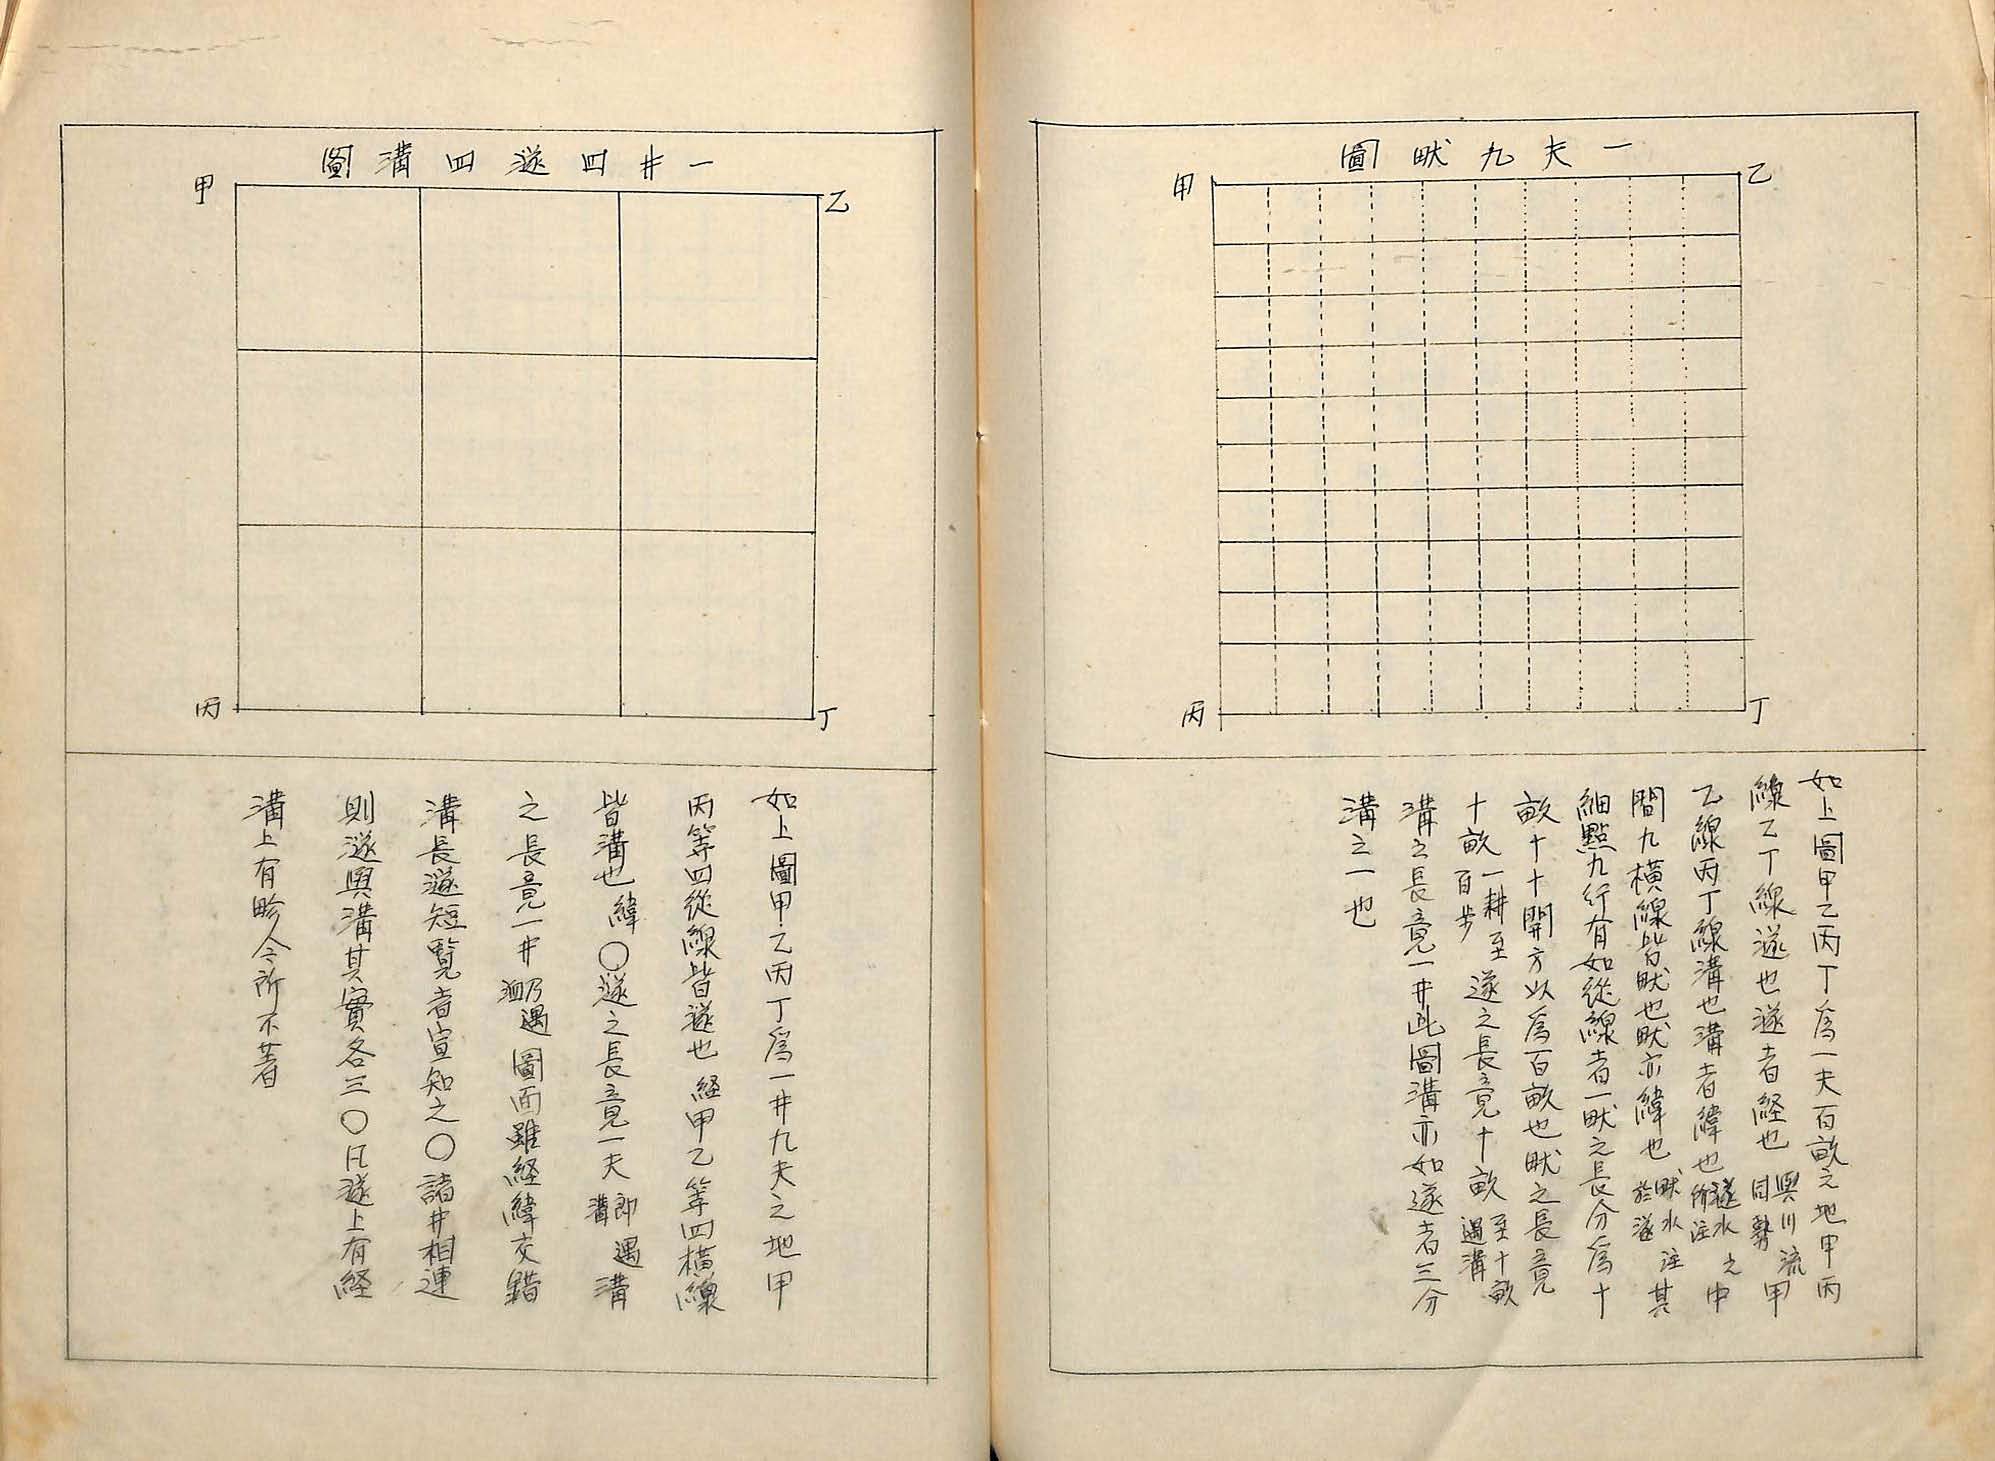 一夫九畎圖
甲
乙
丙
丁
如上圖甲乙丙丁爲一夫百畝之地甲丙
線乙丁線遂也遂者経也與川流同勢甲
乙線丙丁線溝也溝者緯也遂水所注之中
間九橫線皆畎也畎亦緯也畎水注於遂其
細點九行有如從線者一畎之長分爲十
畝十十開方以爲百畝也畎之長竟
十畝一耕至百步遂之長竟十畝至十畝遇溝
溝之長竟一井此圖溝亦如遂者三分
溝之一也
一井四遂四溝圖
甲
乙
丙
丁
如上圖甲乙丙丁爲一井九夫之地甲
丙等四從線皆遂也経甲乙等四橫線
皆溝也緯〇遂之長竟一夫即遇溝溝
之長竟一井乃遇洫圖面雖経緯交錯
溝長遂短覽者宜知之〇諸井相連
則遂與溝其實各三〇凡遂上有経
溝上有畛今所不著